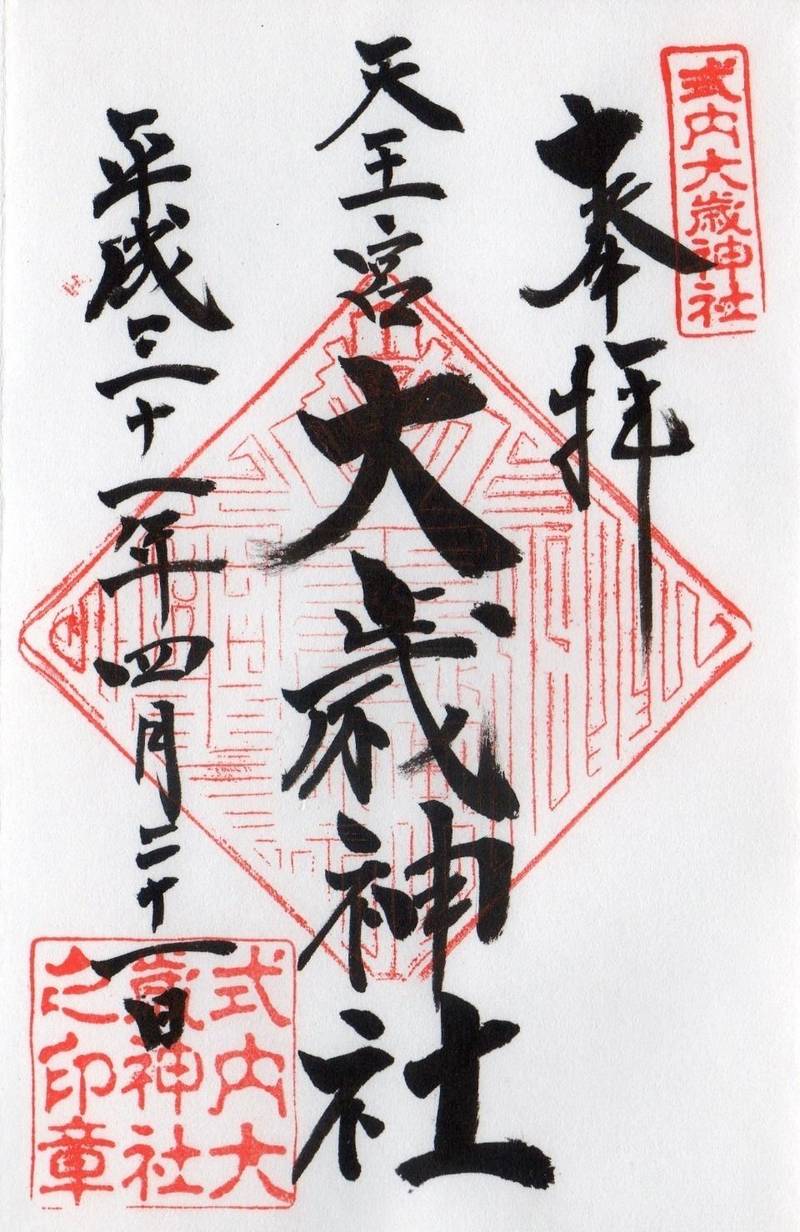 式内大歳神社
奉拝
天王宮
大歳神社
平成三十一年四月二十一日
式内大
歳神社
之印章